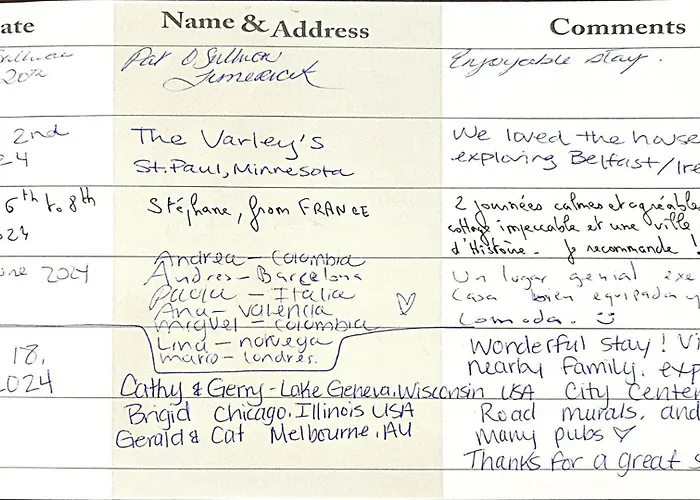 ate Name & Address Comments
20th Pat O'Sullivan Enjoyable stay.
Limerick
2nd The Varley's We loved the house
24 St. Paul, Minnesota exploring Belfast/Ire
6th to 8th Stéphane, from FRANCE 2 journées calmes et agréable
cottage impeccable et une ville
d'Histoire. Je recommande !
Andrea - Colombia
une 2024 Andres - Barcelona Un lugar genial exe
Paola - Italia Casa bien equipada y
Ana - Valencia ♡ Comoda. ☺
Miguel - Colombia
18, Lina - noruega Wonderful stay! Vi
mario - londres. nearby family, exp
2024 Cathy & Gerry - Lake Geneva, Wisconsin USA City Center
Brigid Chicago, Illinois USA Road murals, and
Gerald & Cat Melbourne, AU many pubs ♡
Thanks for a great s